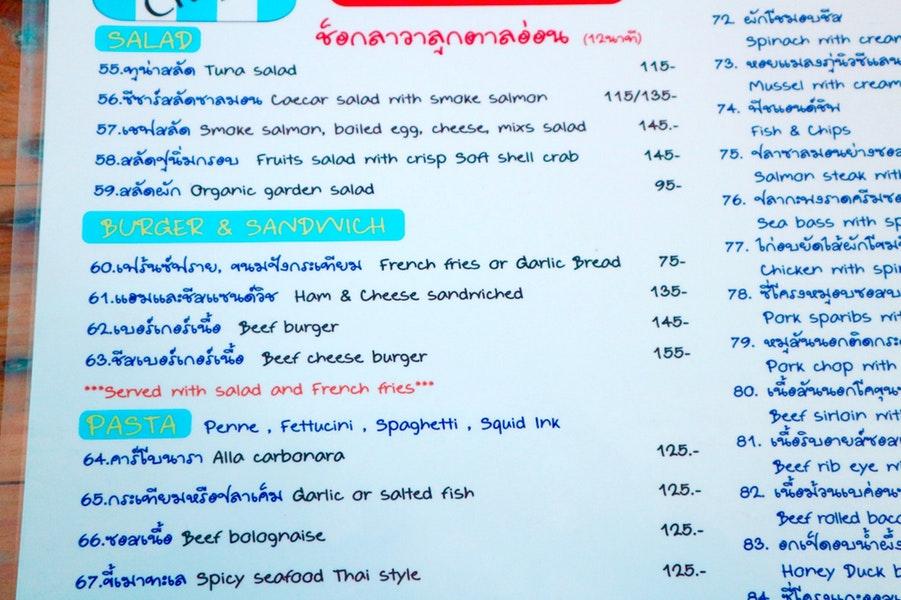 SALAD
ช็อกลาวาลูกตาลอ่อน (12นาที)
55.ทูน่าสลัด Tuna salad 115-
56.ซีซาร์สลัดซาลมอน Caecar salad with smoke salmon 115/135-
57.เชฟสลัด Smoke salmon, boiled egg, cheese, mixs salad 145.-
58.สลัดปูนิ่มกรอบ Fruits salad with crisp Soft shell crab 145-
59.สลัดผัก Organic garden salad 95-
BURGER & SANDWICH
60.เฟร้นซ์ฟราย, ขนมปังกระเทียม French fries or Garlic Bread 75-
61.แฮมและชีสแซนด์วิช Ham & Cheese sandwiched 135-
62.เบอร์เกอร์เนื้อ Beef burger 145-
63.ชีสเบอร์เกอร์เนื้อ Beef cheese burger 155-
***Served with salad and French fries***
PASTA Penne , Fettucini , Spaghetti , Squid Ink
64.คาร์โบนารา Alla carbonara 125.-
65.กระเทียมหรือปลาเค็ม Garlic or salted fish 125.-
66.ซอสเนื้อ Beef bolognaise 125.-
67.ขี้เมาทะเล Spicy seafood Thai style 125.-
72 ผักโขมอบชีส
Spinach with cream
73. หอยแมลงภู่นิวซีแลน
Mussel with cream
74. ฟิชแอนด์ชิพ
Fish & Chips
75. ปลาซาลมอนย่างซอส
Salmon steak with
76. ปลากะพงราดครีมซอ
Sea bass with sp
77. ไก่อบยัดไส้ผักโขม
Chicken with spin
78. ซี่โครงหมูอบซอสบ
Pork sparibs wit
79. หมูสันนอกติดกระ
Pork chop with
80. เนื้อสันนอกโคขุน
Beef sirloin wit
81. เนื้อริบอายส์ซอส
Beef rib eye w
82. เนื้อม้วนเบค่อน
Beef rolled baco
83. อกเป็ดอบน้ำผึ้ง
Honey Duck b
84. ซี่โครงแกะ